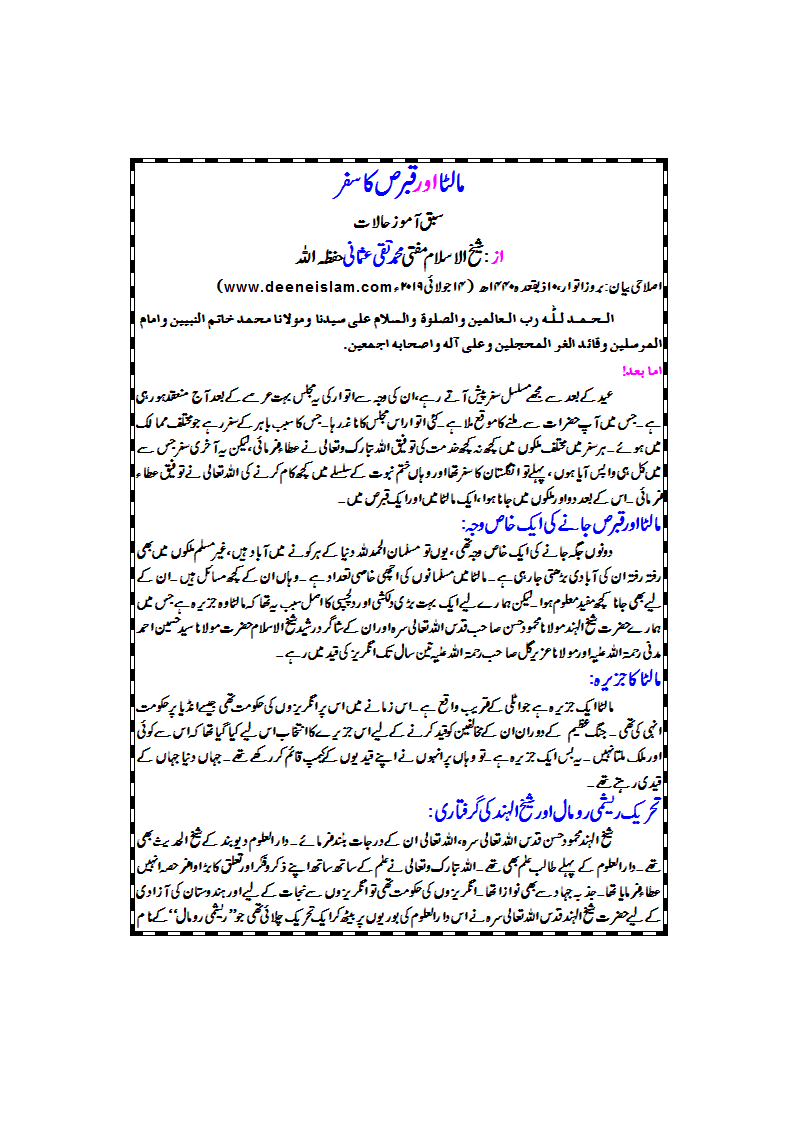 مالٹا اور قبرص کا سفر
سبق آموز حالات
از : شیخ الاسلام مفتی محمد تقی عثمانی حفظہ اللہ
اصلاحی بیان: بروز اتوار، ۱۰ ذیقعدہ ۱۴۴۰ھ (۱۴ جولائی ۲۰۱۹ء www.deeneislam.com)
الـحـمـد لـلّٰـہ رب الـعـالمین والصلوۃ والسلام علی سیدنا ومولانا محمد خاتم النبیین وامام
المرسلین وقائد الغر المحجلین وعلی آلہ واصحابہ اجمعین.
اما بعد!
عید کے بعد سے مجھے مسلسل سفر پیش آتے رہے، ان کی وجہ سے اتوار کی یہ مجلس بہت عرصے کے بعد آج منعقد ہورہی
ہے۔ جس میں آپ حضرات سے ملنے کا موقع ملا ہے۔ کئی اتوار اس مجلس کا ناغہ رہا۔ جس کا سبب باہر کے سفر رہے جو مختلف ممالک
میں ہوئے۔ ہر سفر میں مختلف ملکوں میں کچھ نہ کچھ خدمت کی توفیق اللہ تبارک وتعالی نے عطاء فرمائی، لیکن یہ آخری سفر جس سے
میں کل ہی واپس آیا ہوں، پہلے تو انگلستان کا سفر تھا اور وہاں ختم نبوت کے سلسلے میں کچھ کام کرنے کی اللہ تعالی نے توفیق عطاء
فرمائی۔ اس کے بعد دو اور ملکوں میں جانا ہوا، ایک مالٹا میں اور ایک قبرص میں۔
مالٹا اور قبرص جانے کی ایک خاص وجہ:
دونوں جگہ جانے کی ایک خاص وجہ تھی، یوں تو مسلمان الحمد للہ دنیا کے ہر کونے میں آباد ہیں، غیر مسلم ملکوں میں بھی
رفتہ رفتہ ان کی آبادی بڑھتی جارہی ہے۔ مالٹا میں مسلمانوں کی اچھی خاصی تعداد ہے۔ وہاں ان کے کچھ مسائل ہیں۔ ان کے
لیے بھی جانا کچھ مفید معلوم ہوا۔ لیکن ہمارے لیے ایک بہت بڑی دلکشی اور دلچسپی کا اصل سبب یہ تھا کہ مالٹا وہ جزیرہ ہے جس میں
ہمارے حضرت شیخ الہند مولانا محمود حسن صاحب قدس اللہ تعالی سرہ اور ان کے شاگرد رشید شیخ الاسلام حضرت مولانا سید حسین احمد
مدنی رحمۃ اللہ علیہ اور مولانا عزیر گل صاحب رحمۃ اللہ علیہ تین سال تک انگریز کی قید میں رہے۔
مالٹا کا جزیرہ:
مالٹا ایک جزیرہ ہے جو اٹلی کے قریب واقع ہے۔ اس زمانے میں اس پر انگریزوں کی حکومت تھی جیسے انڈیا پر حکومت
انہی کی تھی۔ جنگ عظیم کے دوران ان کے مخالفین کو قید کرنے کے لیے اس جزیرے کا انتخاب اس لیے کیا گیا تھا کہ اس سے کوئی
اور ملک ملتا نہیں۔ یہ بس ایک جزیرہ ہے۔ تو وہاں پر انہوں نے اپنے قیدیوں کے کیمپ قائم کر رکھے تھے۔ جہاں دنیا جہاں کے
قیدی رہتے تھے۔
تحریک ریشمی رومال اور شیخ الہند کی گرفتاری:
شیخ الہند محمود حسن قدس اللہ تعالی سرہ، اللہ تعالی ان کے درجات بلند فرمائے۔ دارالعلوم دیوبند کے شیخ الحدیث بھی
تھے۔ دارالعلوم کے پہلے طالب علم بھی تھے۔ اللہ تبارک وتعالی نے علم کے ساتھ ساتھ اپنے ذکر وفکر اور تعلق کا بڑا وافر حصہ انہیں
عطاء فرمایا تھا۔ جذبہ جہاد سے بھی نوازا تھا۔ انگریزوں کی حکومت تھی تو انگریزوں سے نجات کے لیے اور ہندوستان کی آزادی
کے لیے حضرت شیخ الہند قدس اللہ تعالی سرہ نے اس دارالعلوم کی بوریوں پر بیٹھ کر ایک تحریک چلائی تھی جو ”ریشمی رومال“ کے نام